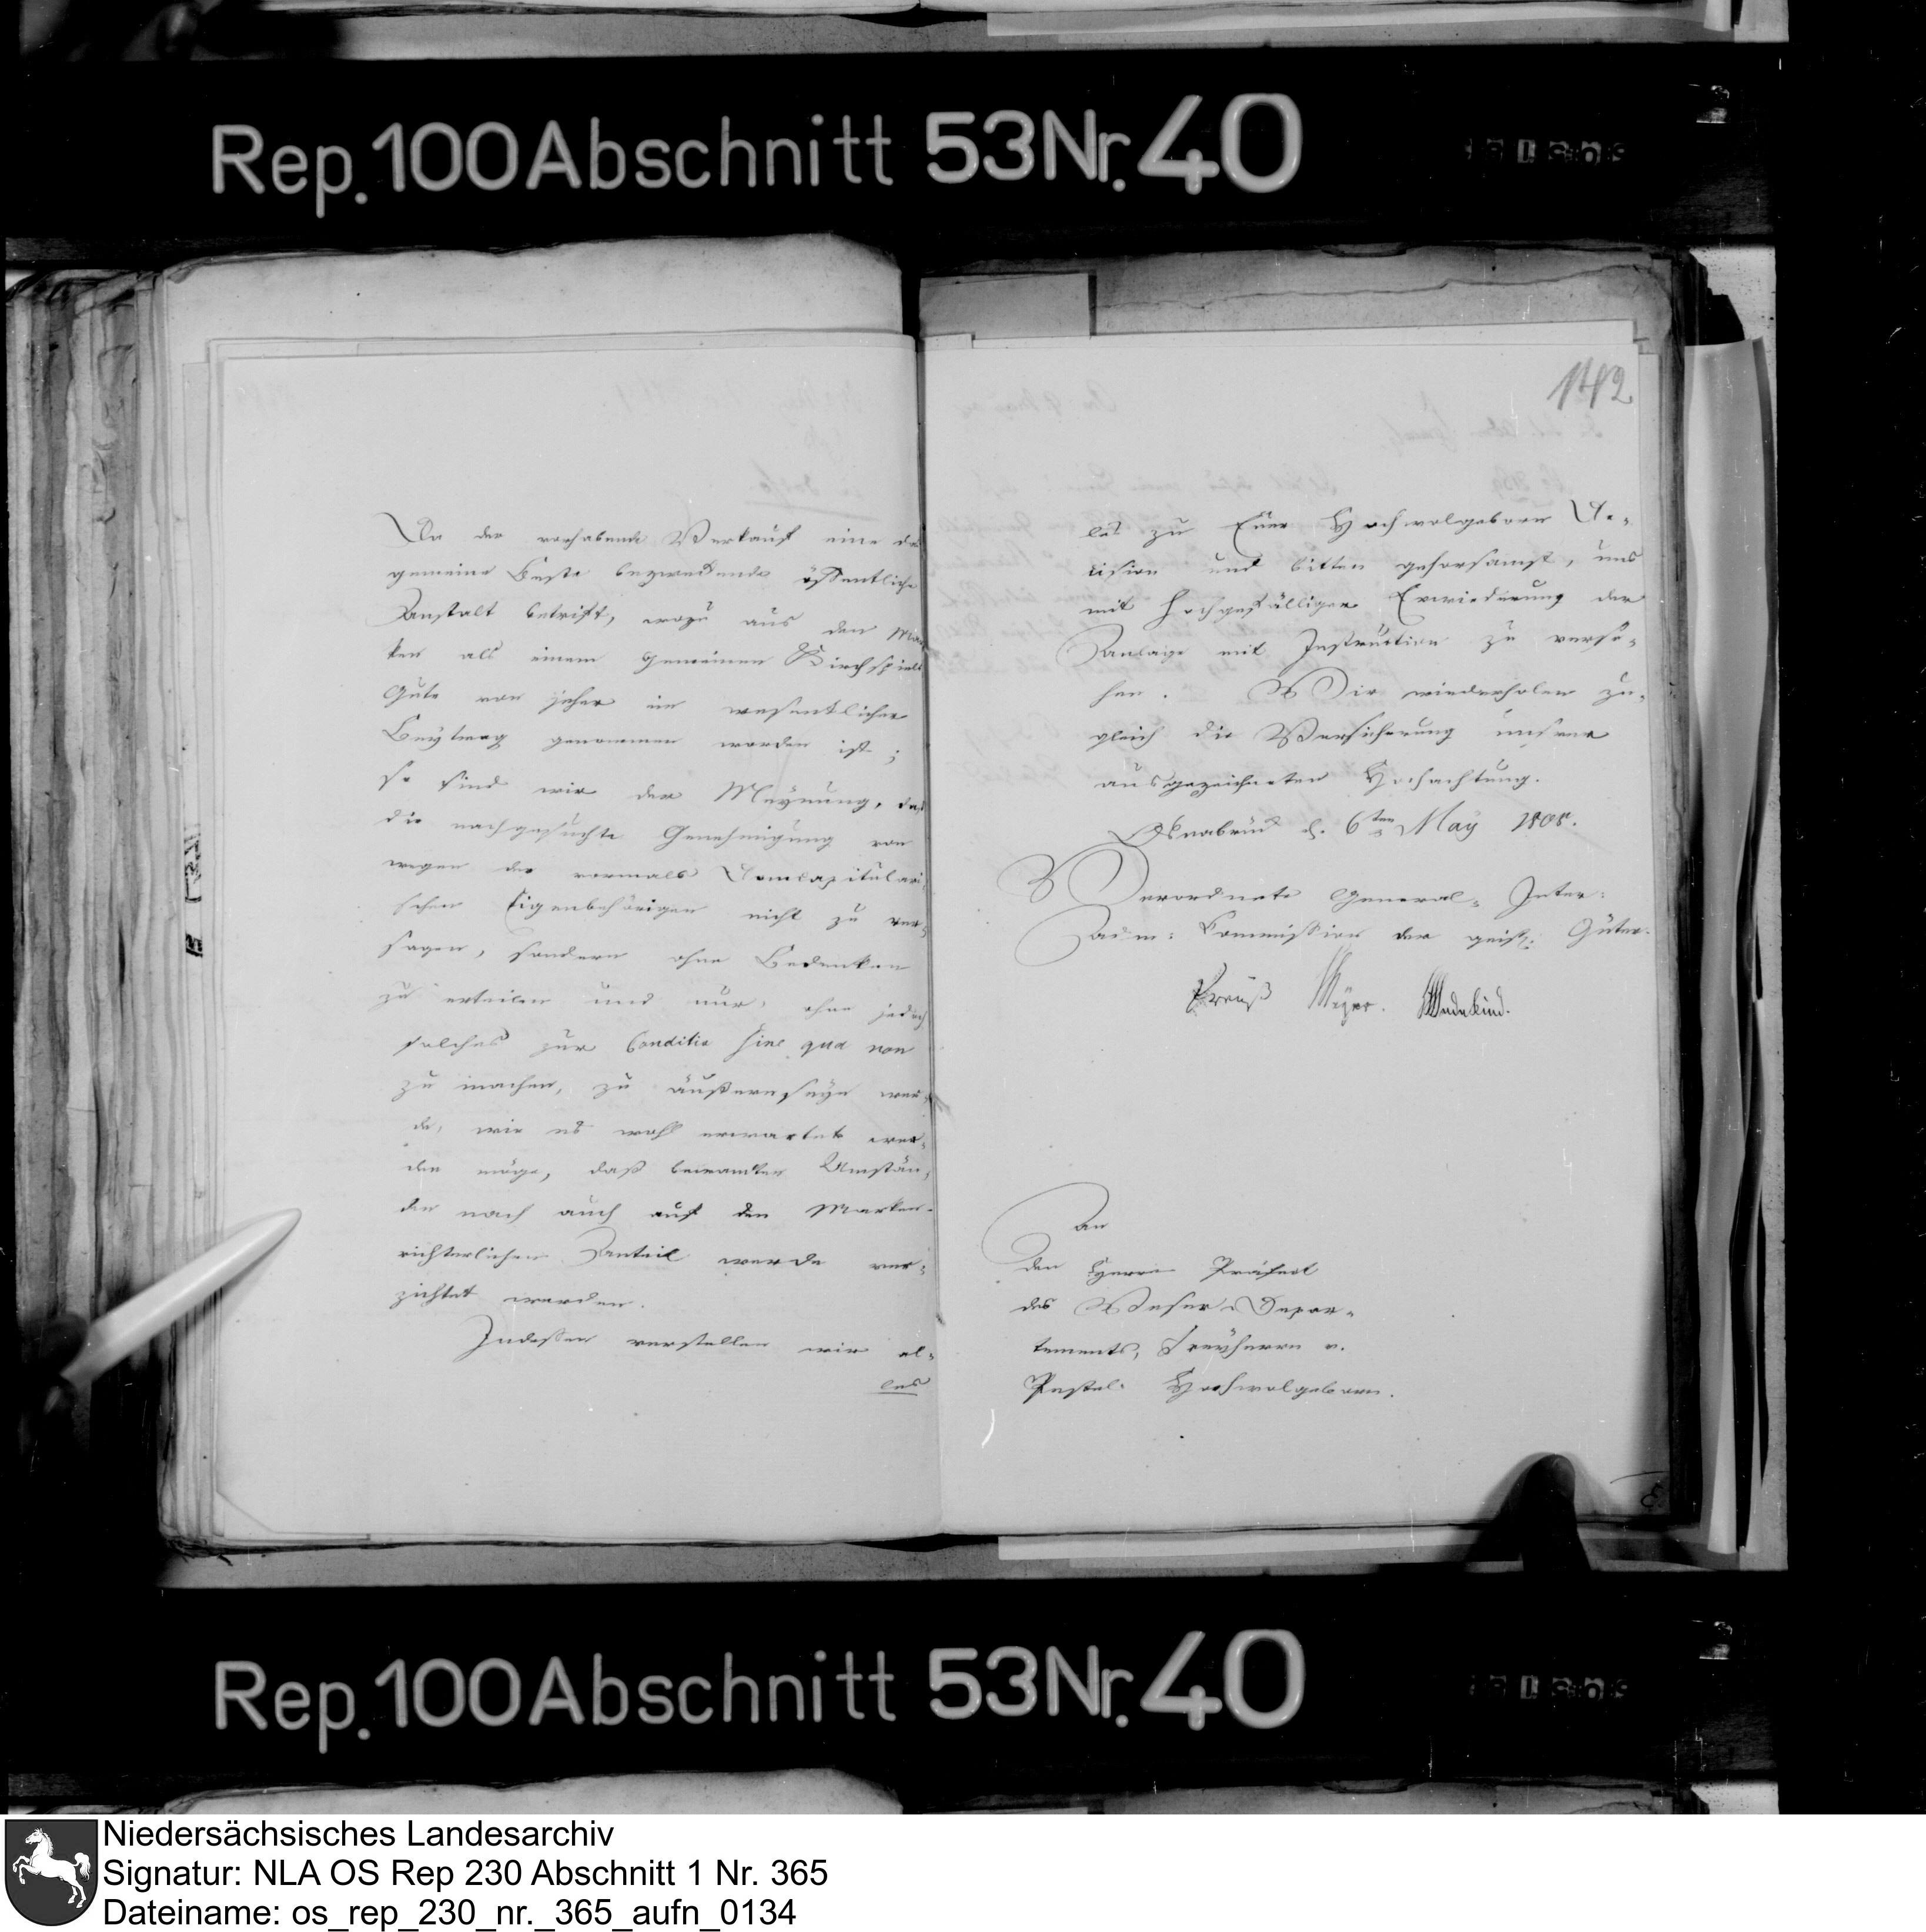 Rep. 100 Abschnitt 53 Nr. 40
142
Da der vorhabende Verkauf eine das
gemeine Beste bezweckende öffentliche
Anstalt betrift, wozu aus den Mar
ken als einem gemeinen Kirchspiels
Gute von jeher ein wesentlicher
Beytrag genommen worden ist;
so sind wir der Meynung, daß
die nachgesuchte Genehmigung von
wegen der vormals Domcapitulari
schen Eigenbehörigen nicht zu ver-
sagen, sondern ohne Bedenken
zu erteilen und nur, ohne jedoch
solches zur Conditio sine qua non
zu machen, zu äußern seyn wer-
de, wie es wohl erwartet wer-
den möge, daß bewandten Umstän-
den nach auch auf den Marken-
richterlichen Anteil werde ver-
zichtet werden.
Indessen verstellen wir al-
les
les zu Euer Hochwolgeborn De-
cision und bitten gehorsamst, uns
mit hochgefälliger Erwiederung der
Anlage mit Instruction zu verse-
hen. Wir wiederholen zu-
gleich die Versicherung unsrer
ausgezeichneten Hochachtung.
Osnabrück d. 6ten May 1808.
Verordnete General-Inter:
Adm: Commission der geistl: Güter.
Preuß Meyer. Wedekind.
An
den Herrn Präfect
des Weser-Depar-
tements, Freyherrn v.
Pestel Hochwolgeborn.
Rep. 100 Abschnitt 53 Nr. 40
Niedersächsisches Landesarchiv
Signatur: NLA OS Rep 230 Abschnitt 1 Nr. 365
Dateiname: os_rep_230_nr._365_aufn_0134